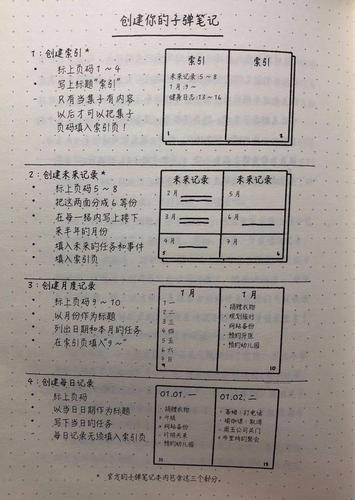 创建你的子弹笔记
1：创建索引*
标上页码 1～4
写上标题"索引"
只有当集子有内容
以后才可以把集子
页码填入索引页！
索引
索引
未来记录：5～8
1月：9～
健身日志：13～16
1
2：创建未来记录*
标上页码 5～8
把这两面分成6等份
在每一格内写上接下
来半年的月份
填入未来的任务和事件
填入索引页
未来记录
未来记录
2月
5月
3月
6月
4月
7月
5
3：创建月度记录
标上页码 9～10
以月份作为标题
列出日期和本月的任务
在索引页填入"9～"
1月
1月
1 一
2 二
3 三
4 四
5 五
6 六
7 日
捐赠衣物
规划旅行
网站备份
预约牙医
预约幼儿园
9
10
4：创建每日记录
标上页码
以当日日期作为标题
写下当日的任务
每日记录无须填入索引页
01.01. 一
01.02. 二
捐赠衣物
网站备份
预约幼儿园
瑜伽课：取消
周五公司关门
11
12
* 官方的子弹笔记本内包含这三个部分。